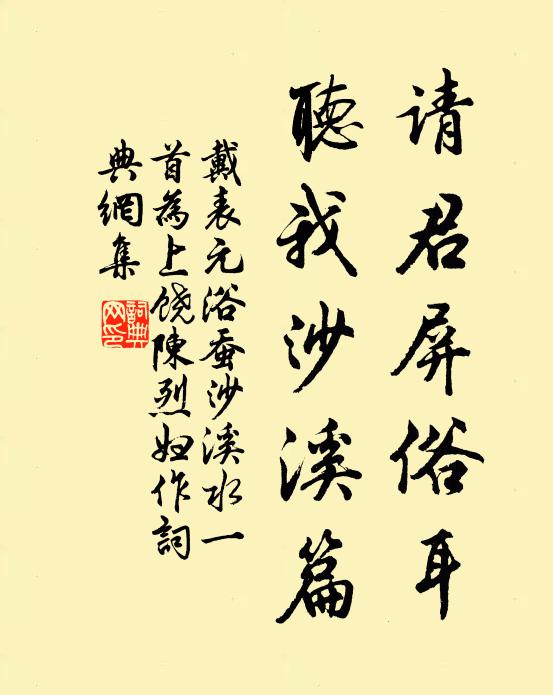 请君屏俗耳
聽我沙溪篇
戴表元浴蚕沙溪水一
首為上饶陳烈妇作詞
典網集
詞典
网印